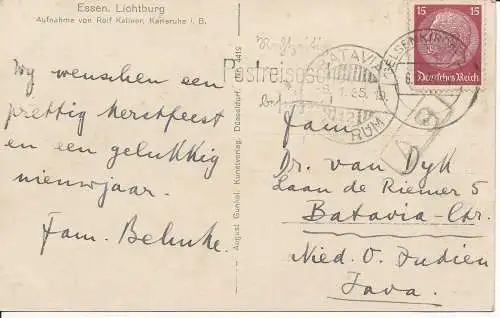 Essen. Lichtburg
Aufnahme von Rolf Kellner, Karlsruhe i. B.
Wy wenschen een
prettig kerstfeest
en een gelukkig
nieuwjaar.
Fam. Behnke.
August Gunkel, Kunstverlag, Düsseldorf. Nr. 4419
15 15
Deutsches Reich
GELSENKIRCHEN
BATAVIA
1.35.
RUM
Fam.
Dr. van Dyk
Laan de Riemer 5
Batavia-Ctr.
Nied. O. Indien
Java.